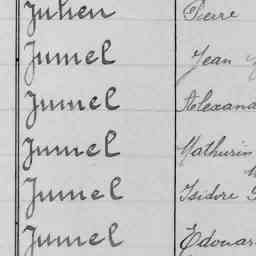 Julien Pierre
Jumel Jean
Jumel Alexand
Jumel Mathurin
Jumel Isidore
Jumel Edouar